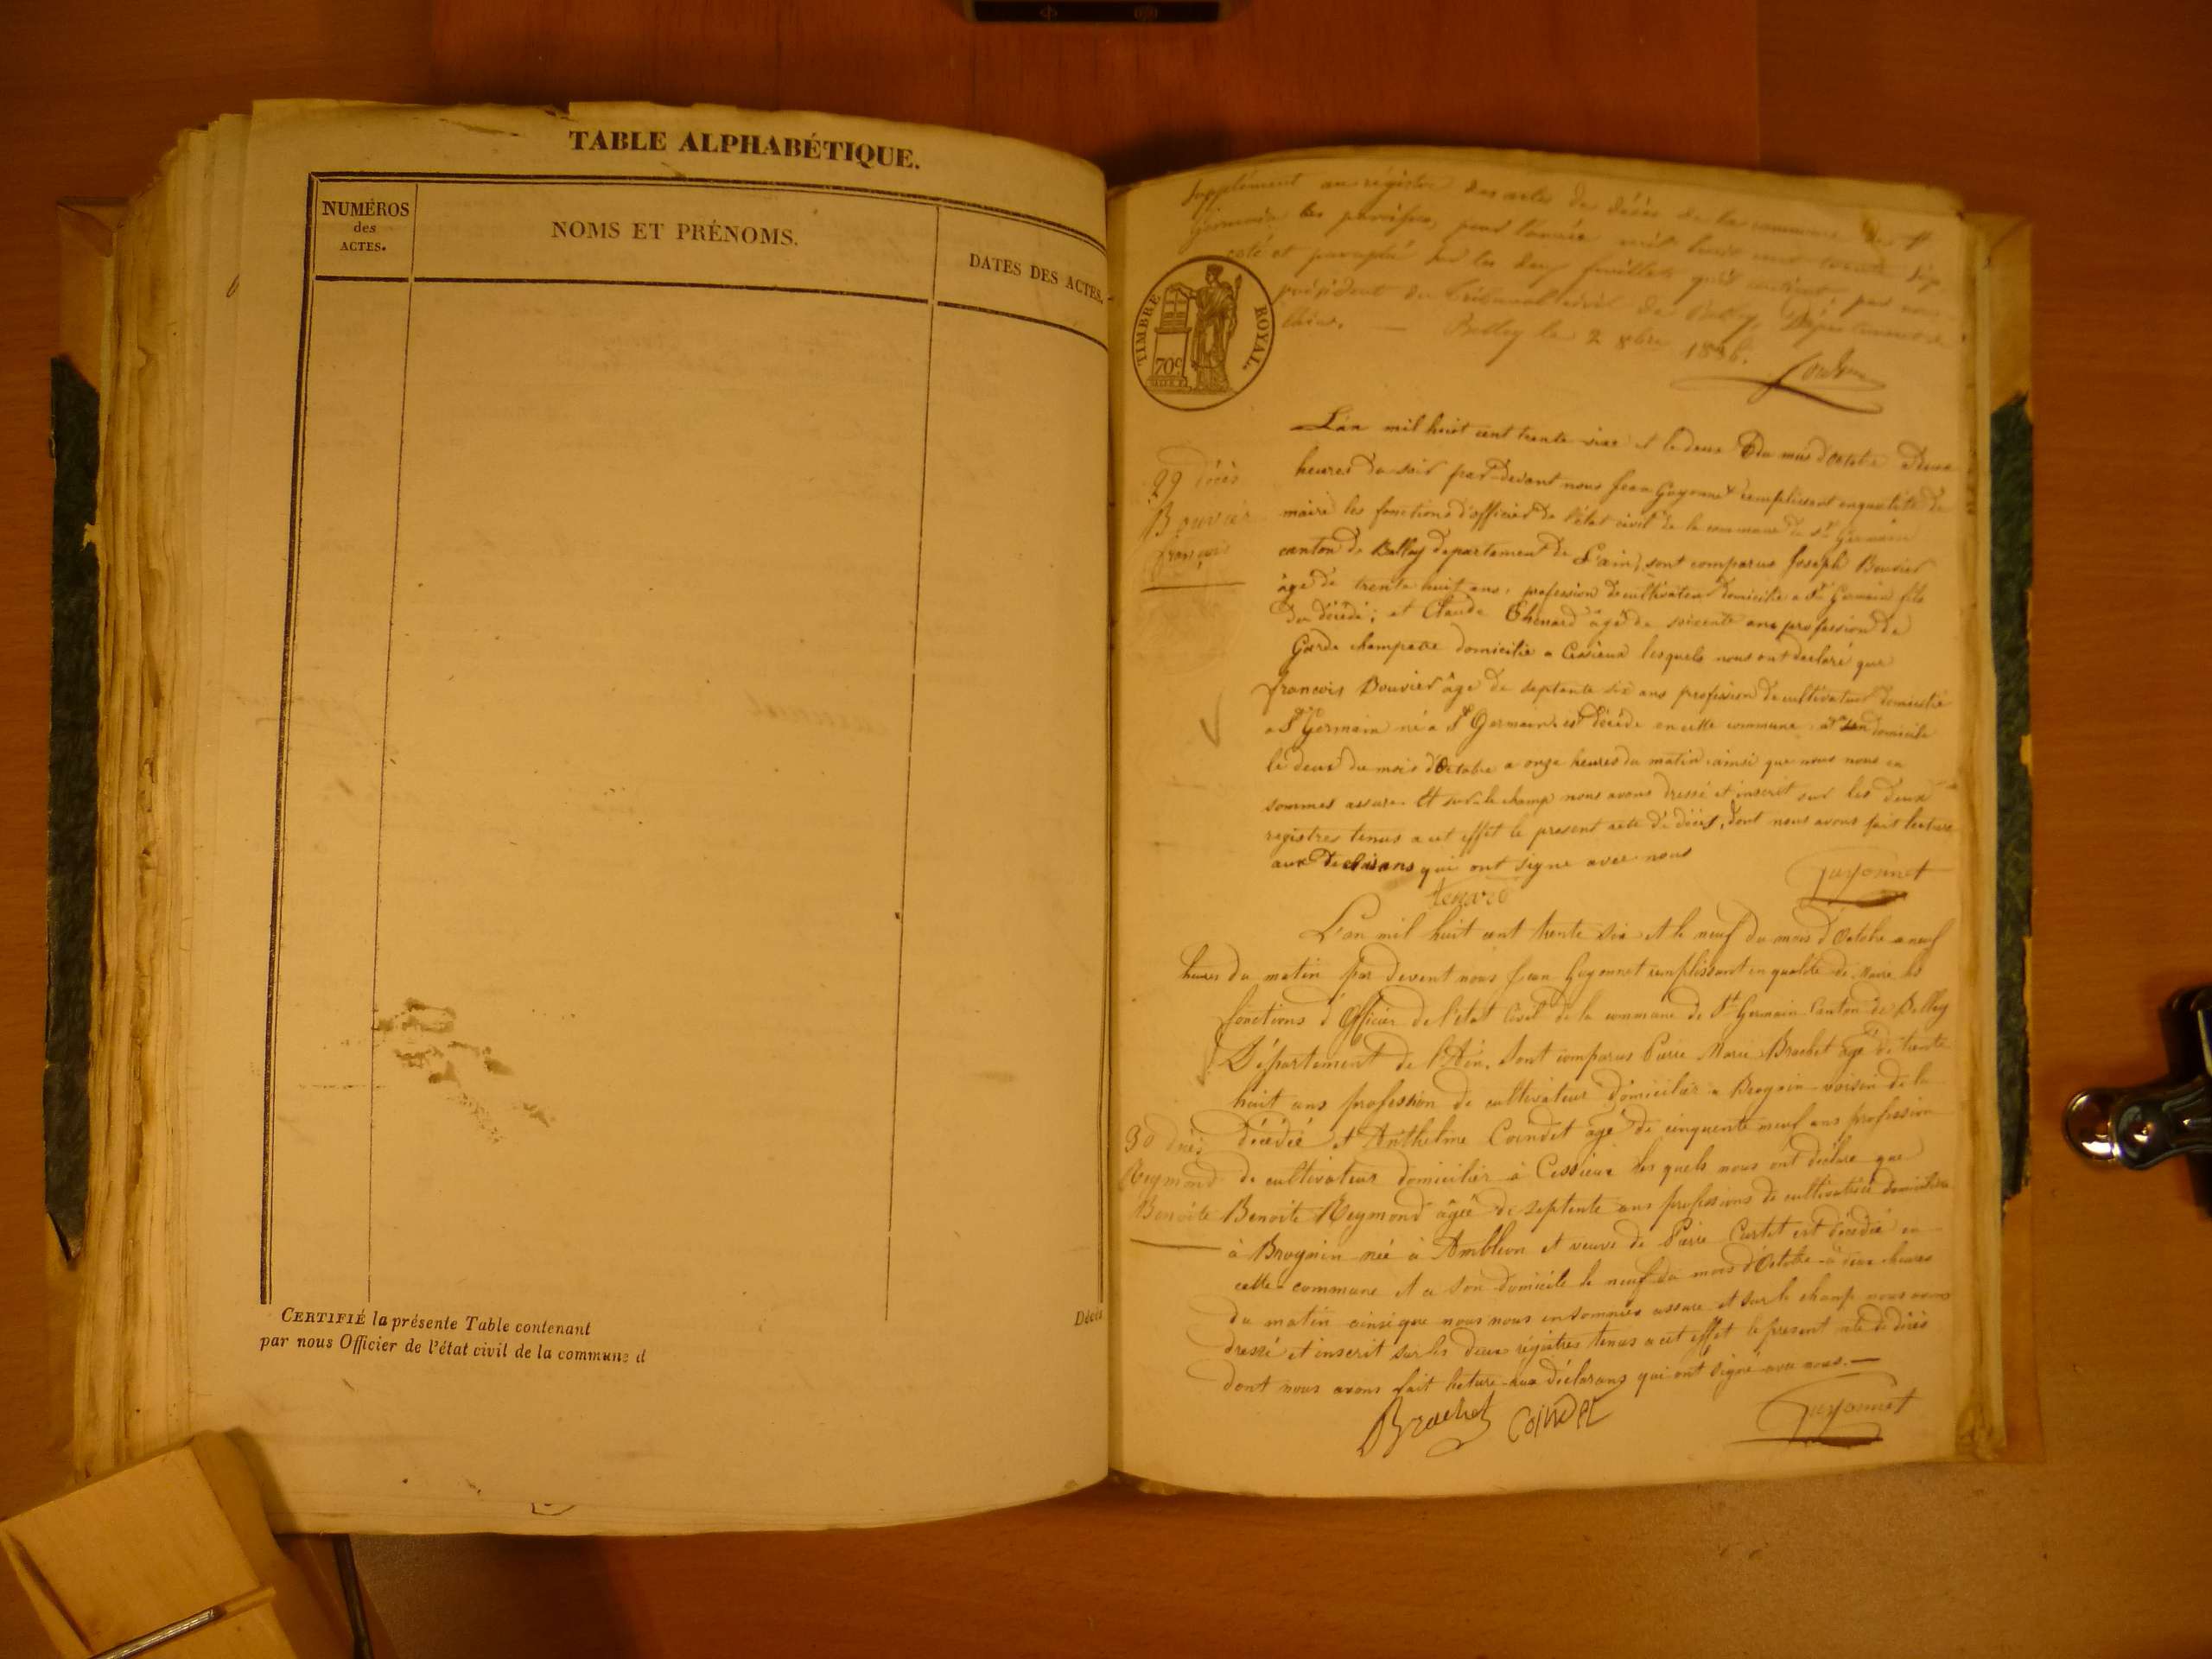 TABLE ALPHABÉTIQUE.
NUMÉROS
des
ACTES.
NOMS ET PRÉNOMS.
DATES DES ACTES.
CERTIFIÉ la présente Table contenant
par nous Officier de l'état civil de la commune d
Décès
Supplément au registre des actes de décès de la commune de St
Germain les paroisses, pour l'année mil huit cent trente six
coté et paraphé sur les deux feuillets qu'il contient, par nous
président du tribunal civil de Belley, Département de
l'Ain. — Belley le 2 8bre 1836.
TIMBRE ROYAL.
70c
29 décès
Bouvier
françois
L'an mil huit cent trente six et le deux du mois d'Octobre Deux
heures du soir par-devant nous Jean Guyonnet remplissant en qualité de
maire les fonctions d'officier de l'état civil de la commune de St Germain
canton de Belley departement de L'ain, sont comparus Joseph Bouvier
âgé de trente huit ans, profession de cultivateur domicilié a St Germain fils
du décédé; et Claude Thenard âgé de soixante ans profession de
Garde champetre domicilié a Cessieux lesquels nous ont declaré que
francois Bouvier âgé de septente six ans profession de cultivateur domicilié
a St Germain né a St Germain est décédé en cette commune à son domicile
le deux du mois d'Octobre a onze heures du matin ainsi que nous nous en
sommes assure. Et sur-le-champ nous avons dressé et inscrit sur les deux
registres tenus a cet effet le present acte de décès, dont nous avons fait lecture
aux declarans qui ont signe avec nous
Tenard
Guyonnet
L'an mil huit cent trente six et le neuf du mois d'Octobre a neuf
heures du matin par devent nous Jean Guyonnet remplissant en qualité de Maire les
fonctions d'Officier de l'état Civil de la commune de St Germain Canton de Belley
Département de l'Ain, Sont comparus Pierre Marie Brachet âgé de trente
huit ans profession de cultivateur domicilier a Brognin voisin de la
décédée et Anthelme Coindet âgé de cinquente neuf ans profession
30 décès
Reymond
Benoite
de cultivateur domicilier à Cessieux les quels nous ont déclare que
Benoite Reymond âgée de septente ans professions de cultivatrice domiciliée
à Brognin née à Ambléon et veuve de Pierre Curtet est décédée en
cette commune et a son domicile le neuf du mois d'Octobre à deux heures
du matin ainsi que nous nous en sommes assure et sur le champ nous avons
dressé et inscrit sur les deux régistres tenus a cet effet le present acte de décès
dont nous avons fait lecture aux déclarans qui ont signé avec nous. —
Brachet Coindet
Guyonnet